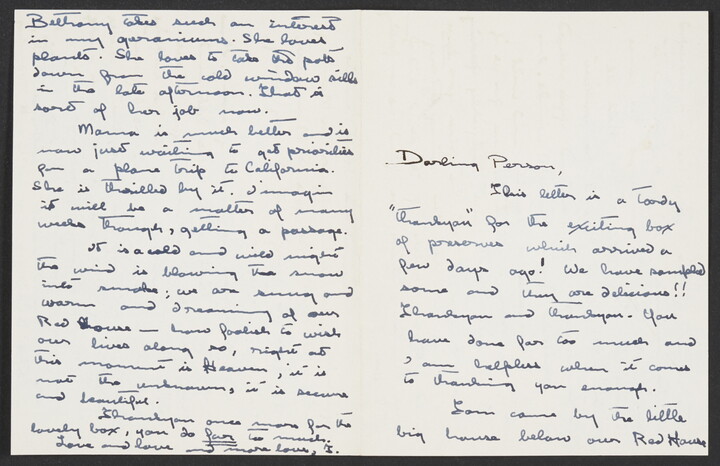 Bethany takes such an interest
in my geraniums. She loves
plants. She loves to take the pots
down from the cold window sills
in the late afternoon. That is
sort of her job now.
Mama is much better and is
now just waiting to get priorities
for a plane trip to California.
She is thrilled by it. I imagin
it will be a matter of many
weeks though, getting a passage.
It is a cold and wild night
the wind is blowing the snow
into smoke; we are snug and
warm and dreaming of our
Red House — how foolish to wish
our lives along so, right at
this moment is Heaven; it is
not the unknown, it is secure
and beautiful.
Thankyou once more for the
lovely box, you do far to much.
Love and love and more love, I.
Darling Person,
This letter is a tardy
"thankyou" for the exciting box
of preserves which arrived a
few days ago! We have sampled
some and they are delicious!!
Thankyou and thankyou. You
have done far too much and
I am helpless when it comes
to thanking you enough.
Tom came by the little
big house below our Red House